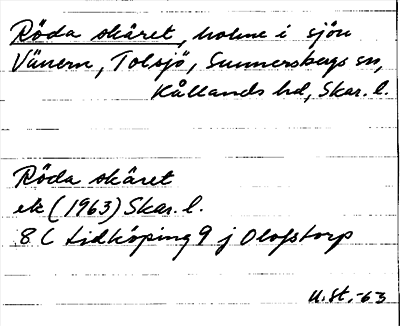 Röda skäret, holme i sjön
Vänern, Tolsjö, Sunnersbergs sn,
Kållands hd, Skar. l.
Röda skäret
ek (1963) Skar. l.
8 C Lidköping 9 j Olofstorp
U.St. -63